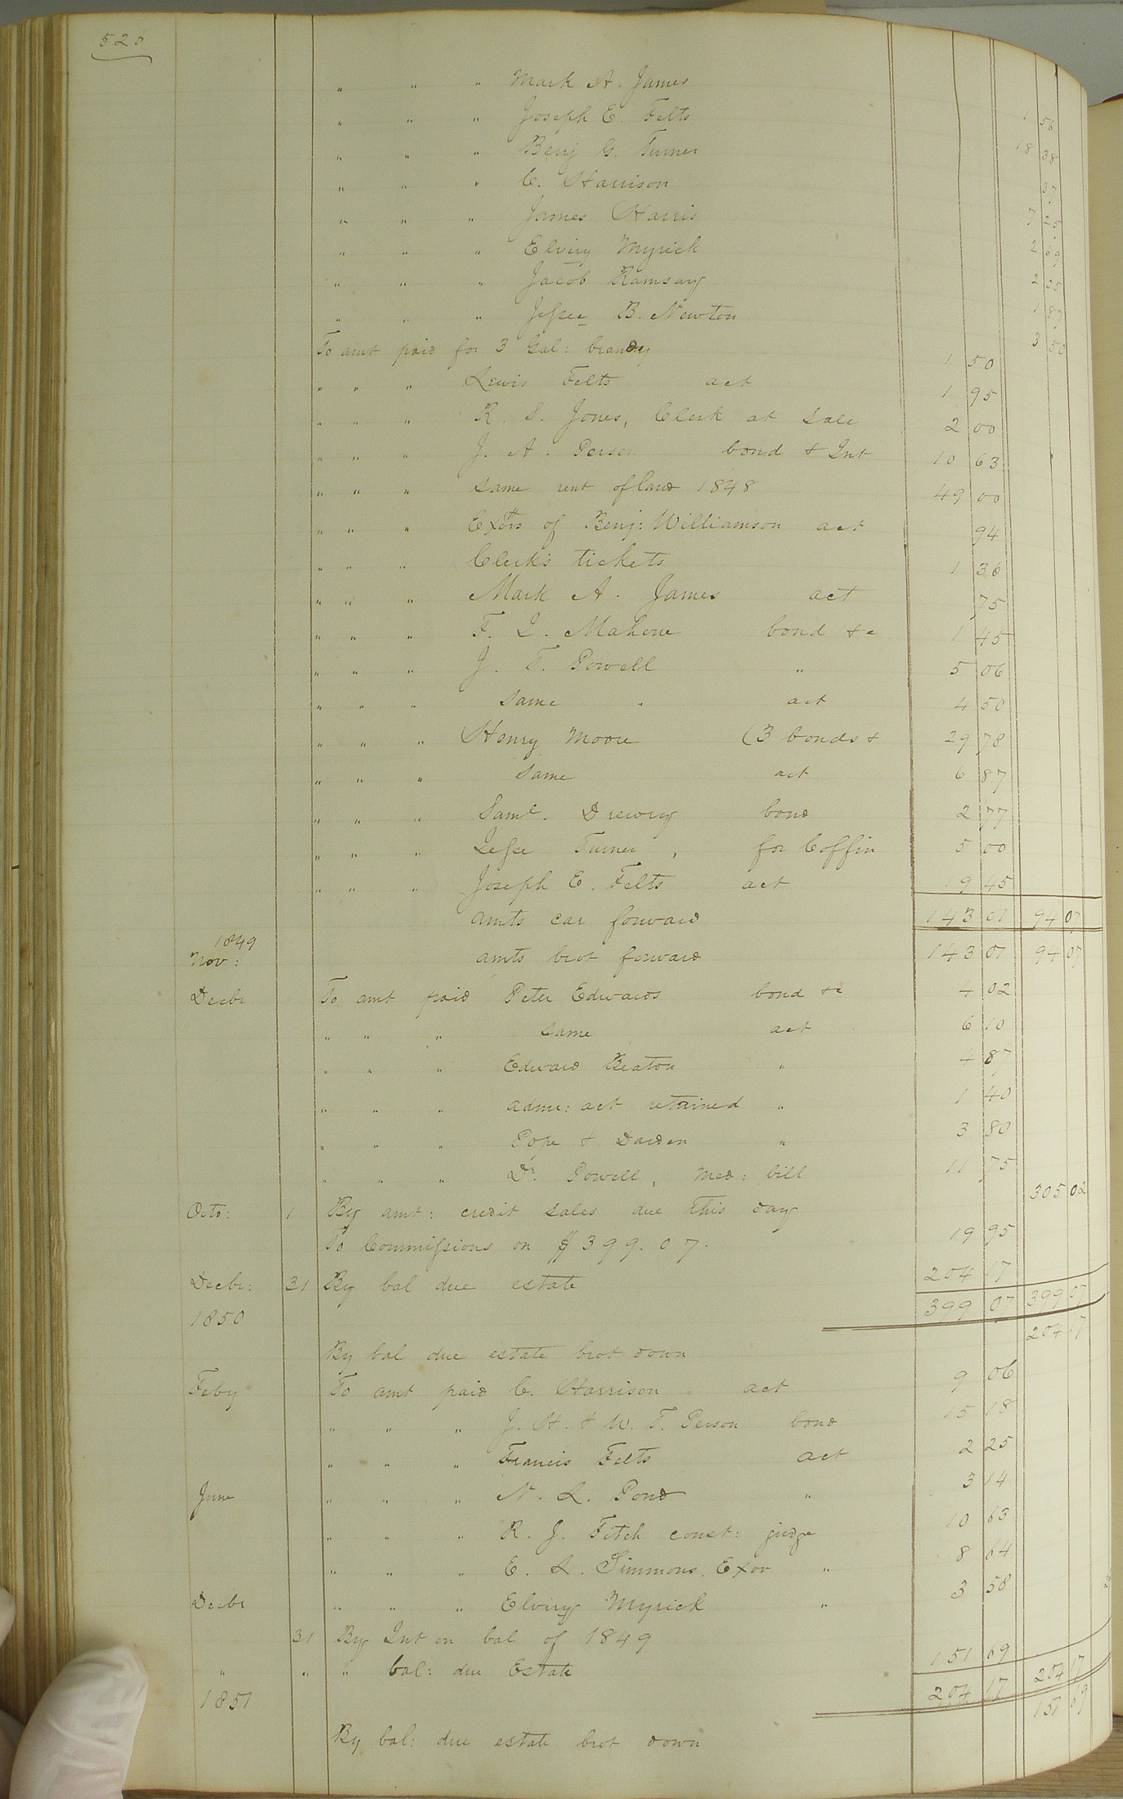 520
" " " Mark A. James 1 56
" " " Joseph E. Felts 18 38
" " " Benj G. Turner 37
" " " C. Harrison
" " " James Harris
" " " Elviry Myrick 2 69
" " " Jacob Ramsay
" " " Jessee B. Newton 3 50
To amt paid for 3 Gal: brandy 1 50
" " " Lewis Felts act 1 95
" " " R. S. Jones, Clerk at Sale 2 00
" " " J. A. Person bond & Int 10 63
" " " same rent of land 1848 49 00
" " " Exors of Benj: Williamson act 94
" " " Clerk's tickets 1 36
" " " Mark A. James act 75
" " " F. L. Mahone bond &c 1 45
" " " J. T. Powell " 5 06
" " " same act 4 50
" " " Henry Moore (3 bonds & 29 78
" " " same act 6 87
" " " Saml. Drewry bond 2 77
" " " Jesse Turner, for Coffin 5 00
" " " Joseph E. Felts act 19 45
amts car forward 143 01 94 07
1849
Nov: amts brot forward 143 01 94 07
Decbr To amt paid Peter Edwards bond &c 4 02
" " " same act 6 10
" " " Edward Beaton " 4 87
" " " admr: act retained " 1 40
" " " Pope & Darden " 3 80
" " " Dr. Powell, med: bill 11 75
Octo: 1 By amt: credit sales due this day 305 02
To Commissions on $399.07. 19 95
Decbr: 31 By bal due estate 204 17
1850 399 07 399 07
By bal due estate brot down 204 17
Feby To amt paid C. Harrison act 9 06
" " " J. H. & W. T. Person bond 15 18
" " " Francis Felts act 2 25
June " " " N. L. Pond " 3 14
" " " R. J. Fitch const: judge 10 63
" " " E. L. Simmons, Exor " 8 64
Decbr " " " Elviry Myrick " 3 58
31 By Int on bal of 1849
" " " bal: due Estate 151 69
1851 204 17 204 17
By bal: due estate brot down 151 69